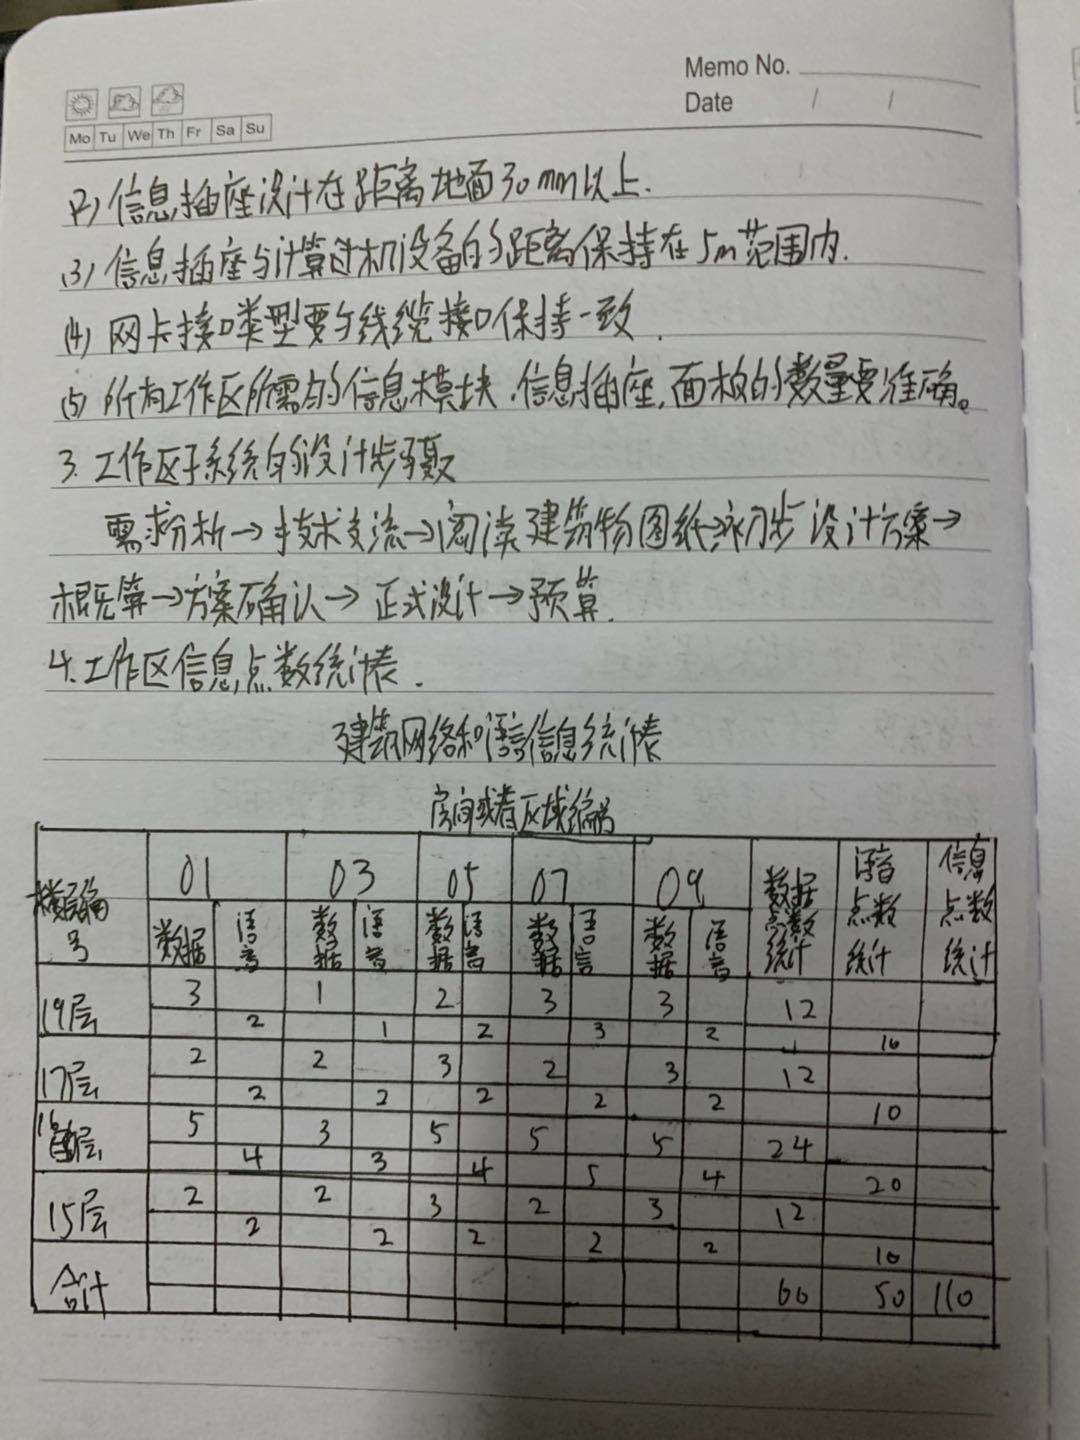 Memo No.
Date / /
Mo Tu We Th Fr Sa Su
(2) 信息插座设计在距离地面30mm以上.
(3) 信息插座与计算机设备的距离保持在5m范围内.
(4) 网卡接口类型要与线缆接口保持一致.
(5) 所有工作区所需的信息模块、信息插座、面板的数量要准确。
3. 工作区子系统的设计步骤
需求分析→技术交流→阅读建筑物图纸→初步设计方案→
概算→方案确认→正式设计→预算.
4. 工作区信息点数统计表.
建筑网络和语音信息统计表
房间或者区域编号
楼层编号 01 03 05 07 09 数据点数统计 语音点数统计 信息点数统计
数据 语音 数据 语音 数据 语音 数据 语音 数据 语音
19层 3 1 2 3 3 12
2 1 2 3 2 10
17层 2 2 3 2 3 12
2 2 2 2 2 10
16层 5 3 5 5 5 24
4 3 4 5 4 20
15层 2 2 3 2 3 12
2 2 2 2 2 10
合计 60 50 110